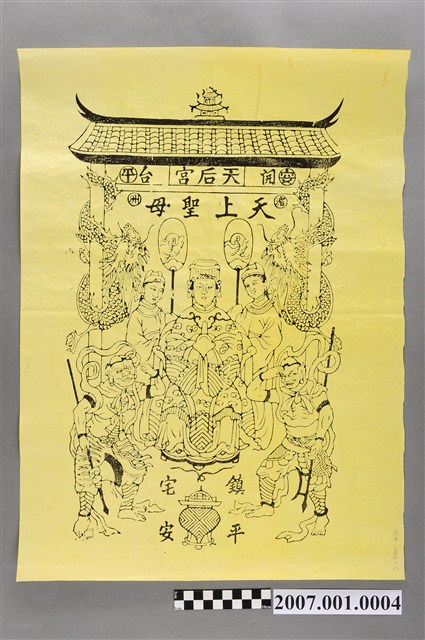 安開天后宮台平
湄天上聖母州
鎮宅
平安
2007.001.0004